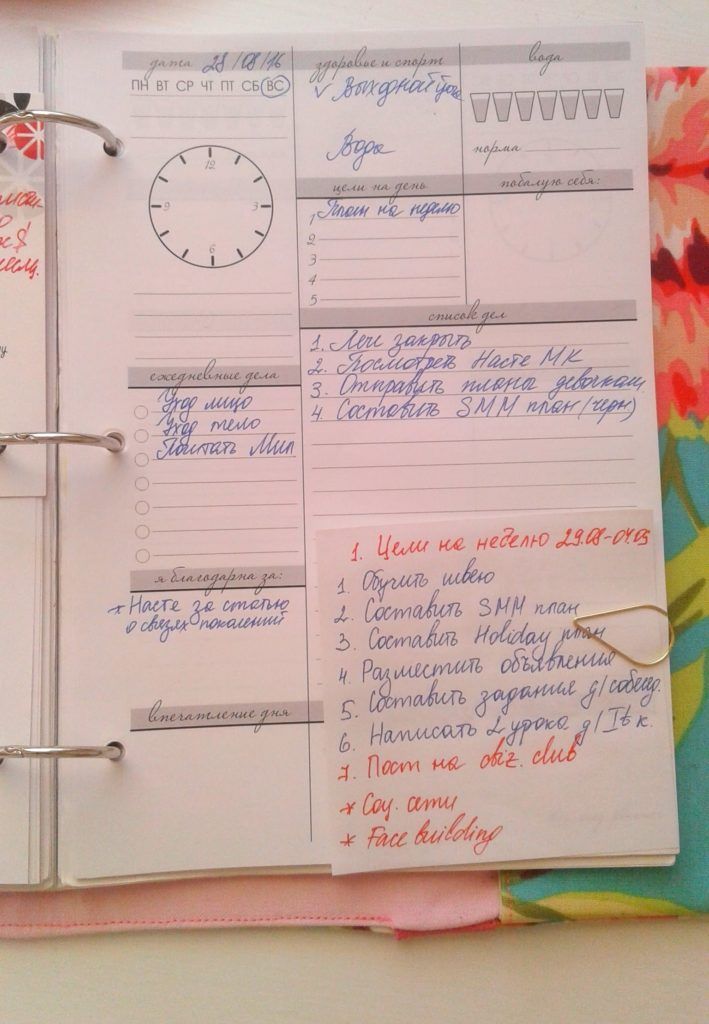 дата 28/08/16
ПН ВТ СР ЧТ ПТ СБ ВС
12
3
6
9
ежедневные дела
Уход лицо
Уход тело
Почитать Мил
я благодарна за:
* Насте за статью
о связях поколений
впечатление дня
здоровье и спорт
✓ Выходной
Воды
вода
норма
цели на день
1 План на неделю
2
3
4
5
побалую себя:
список дел
1. Легн закрыть
2. Посмотреть Насте МК
3. Отправить планы девочкам
4. Составить SMM план (черн)
1. Цели на неделю 29.08-04.09
1. Обучить швею
2. Составить SMM план
3. Составить Holiday план
4. Разместить объявления
5. Составить задания д/собесед.
6. Написать 2 урока д/ к.
7. Пост на obiz.club
* Соц. сети
* Face building